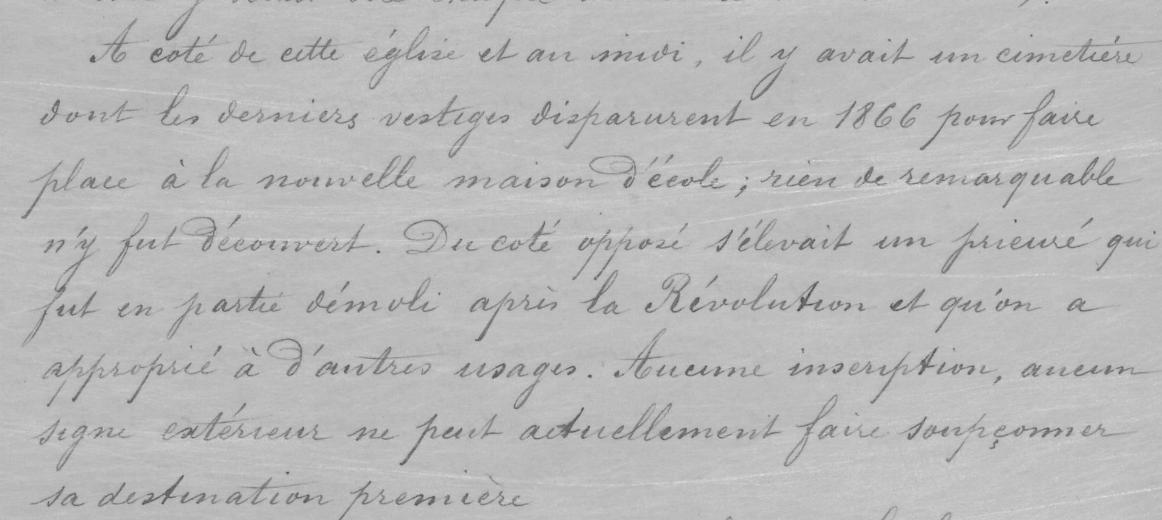 A coté de cette église et au midi, il y avait un cimetière
dont les derniers vestiges disparurent en 1866 pour faire
place à la nouvelle maison d'école ; rien de remarquable
n'y fut découvert. Du coté opposé s'élevait un prieuré qui
fut en partie démoli après la Révolution et qu'on a
approprié à d'autres usages. Aucune inscription, aucun
signe extérieur ne peut actuellement faire soupçonner
sa destination première